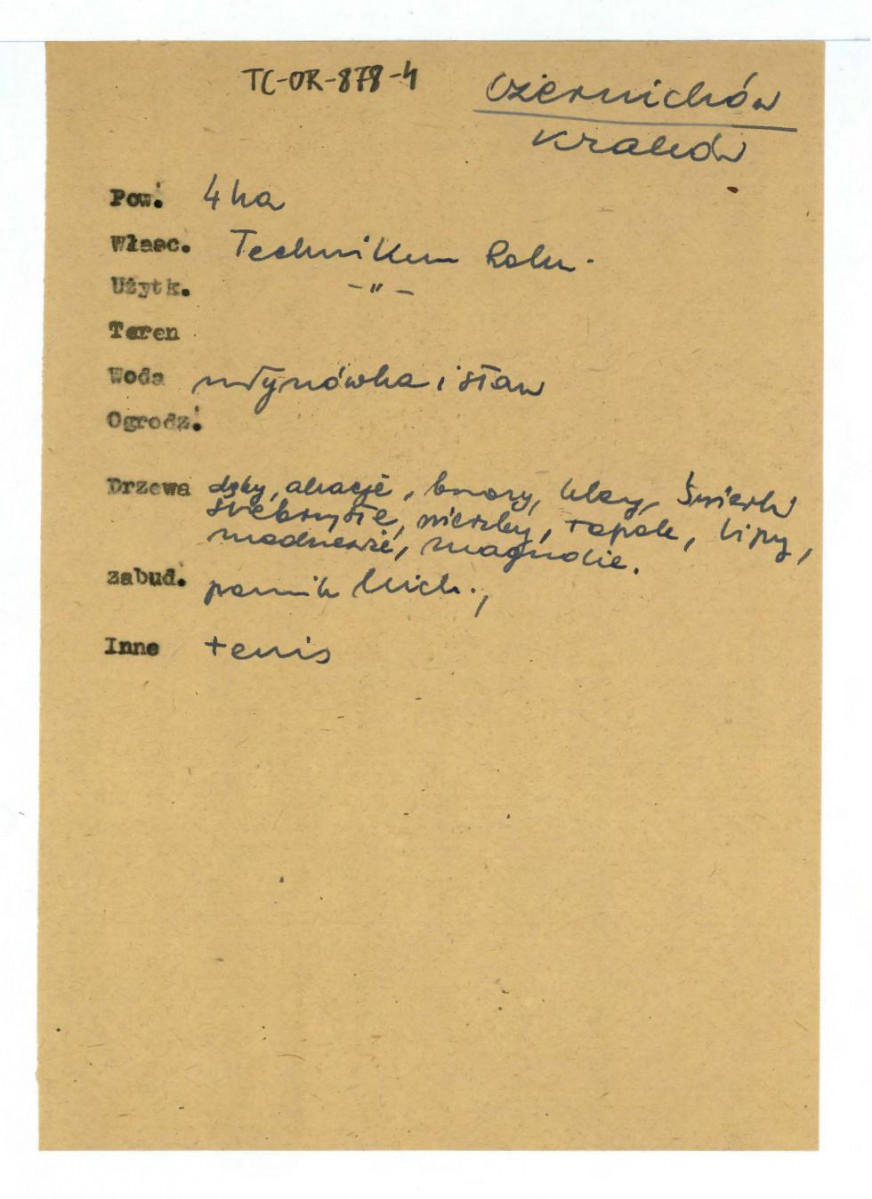 TC-OR-878-4
Czernichów
Kraków
Pow. 4 ha
Właśc. Technikum Roln.
Użytk. -"-
Teren
Woda młynówka i staw
Ogrodz.
Drzewa dęby, akacje, brzozy, klony, świerki
srebrzyste, wierzby, topole, lipy,
modrzewie, magnolie.
zabud. pomnik Mick.,
Inne tenis